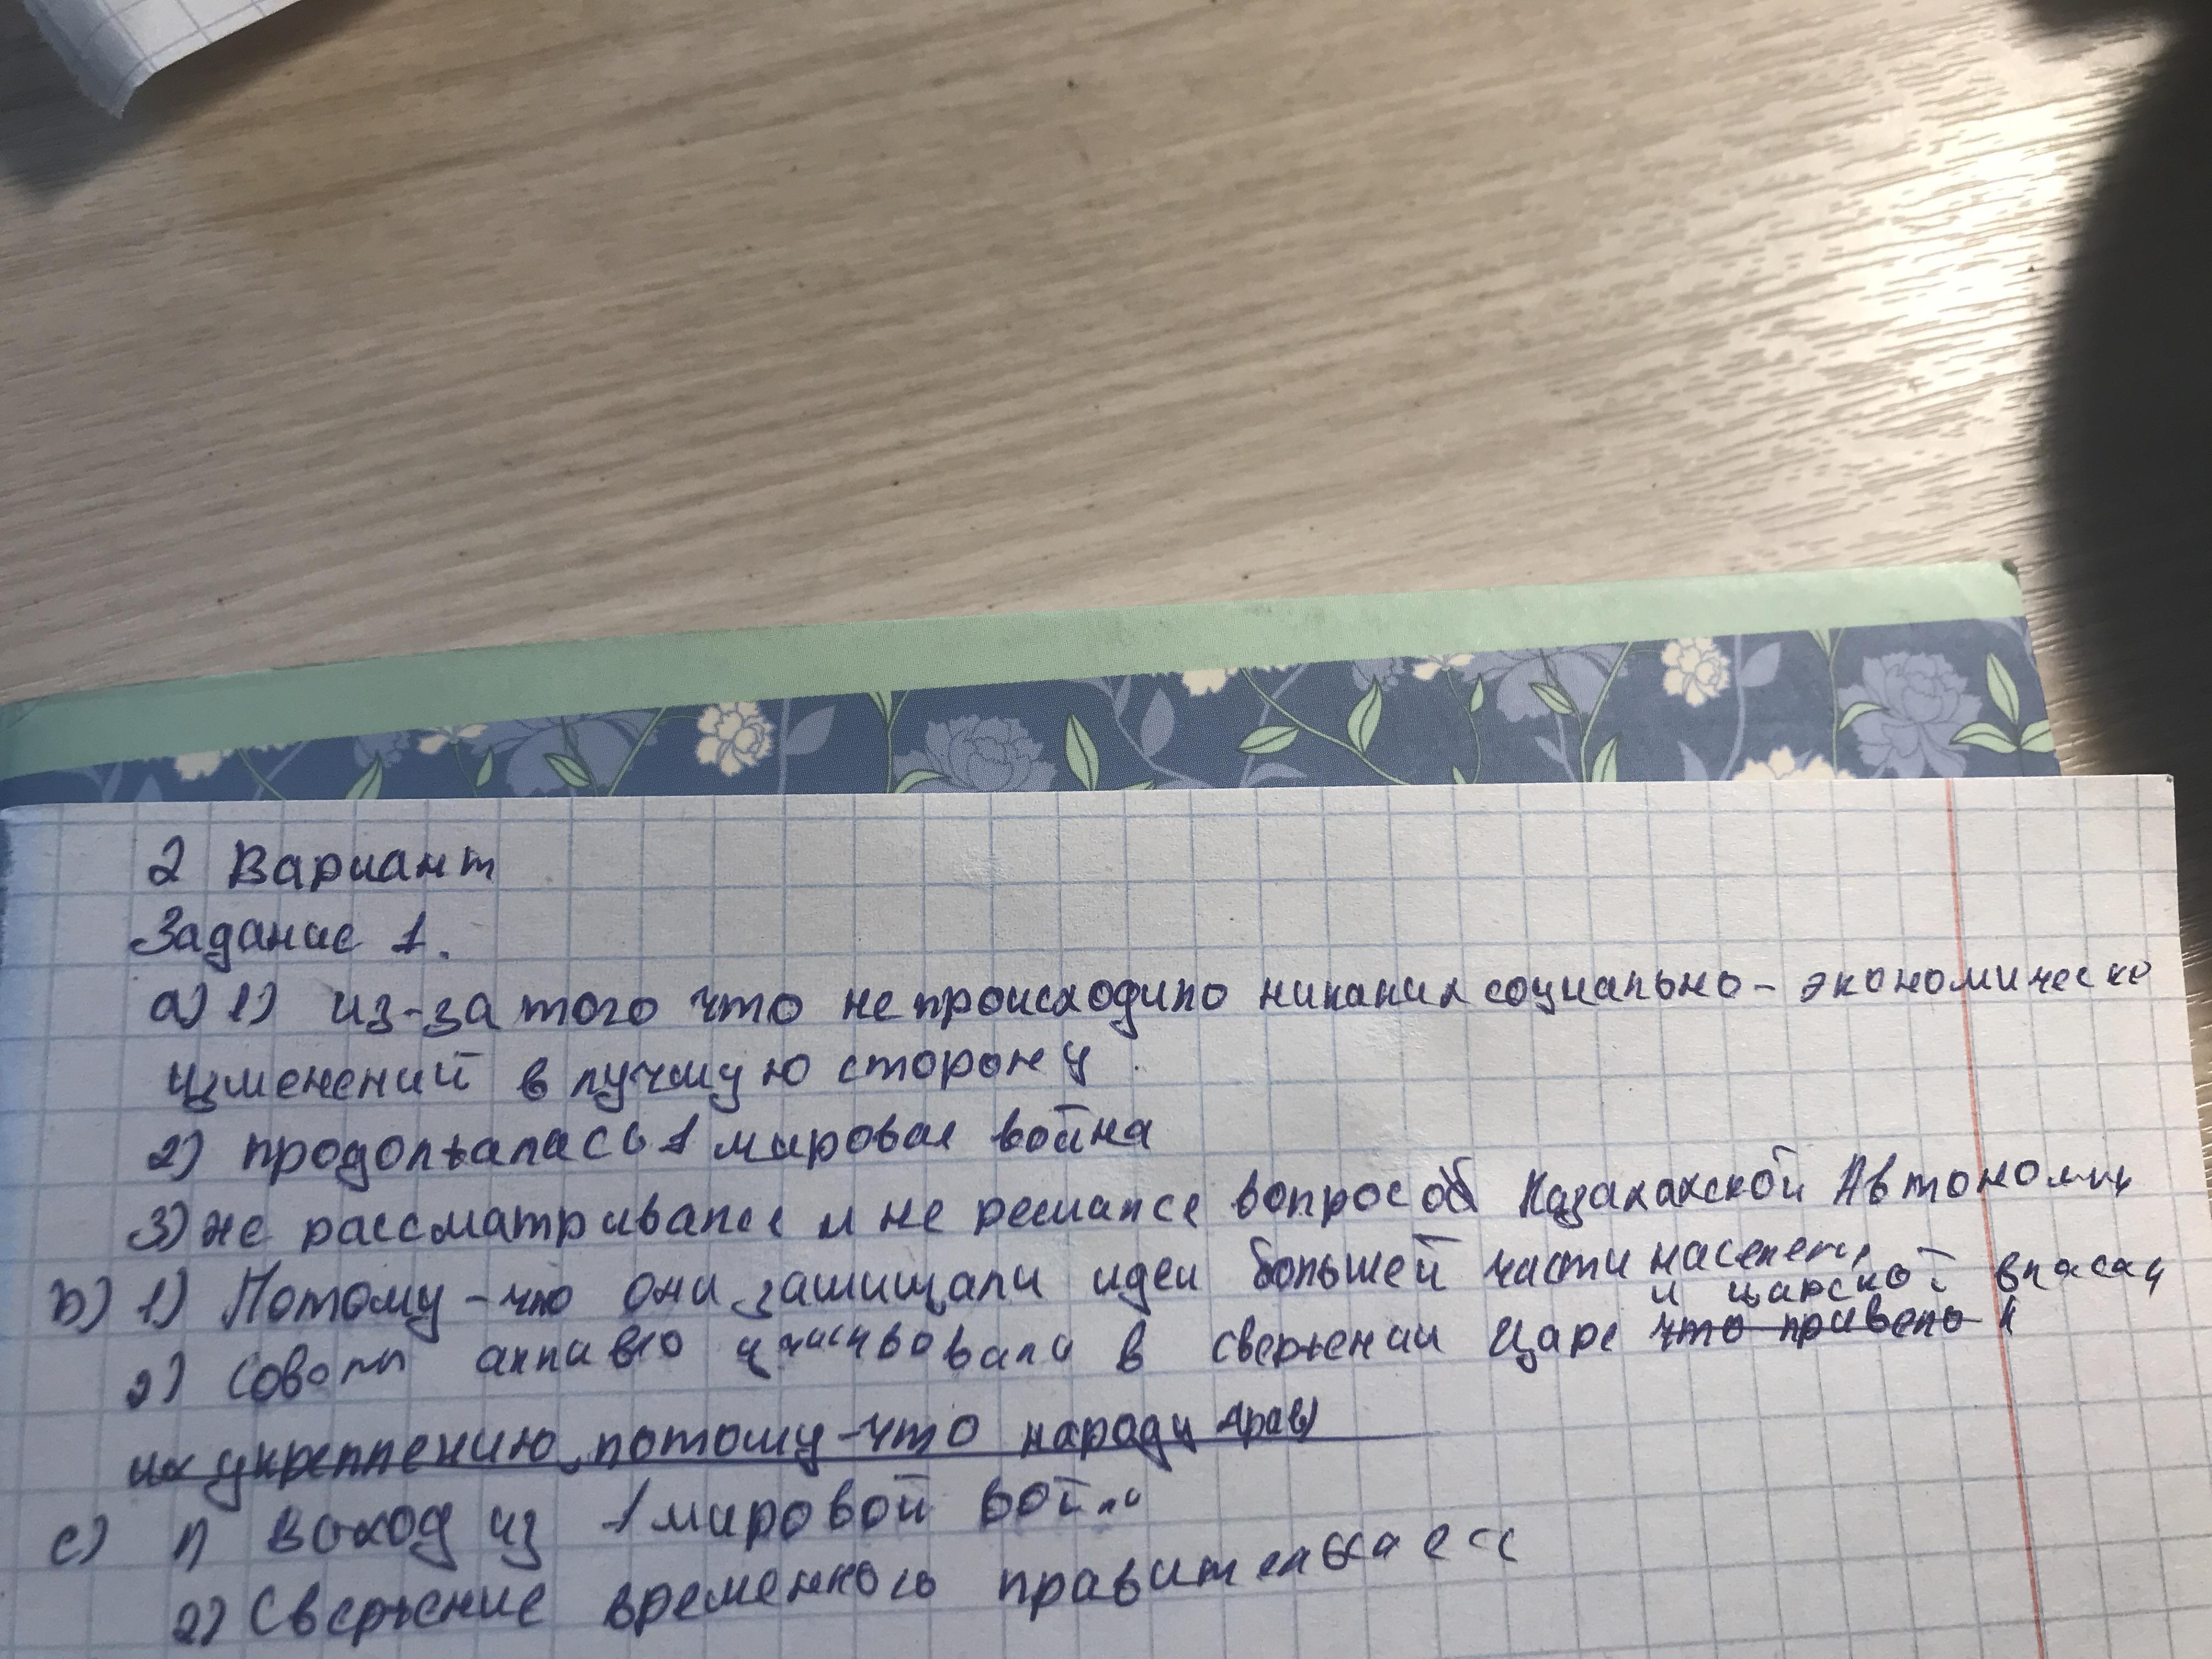 2 Вариант
Задание 1.
а) 1) из-за того что не происходило никаких социально-экономическе
изменений в лучшую сторону
2) продолжалась 1 мировая война
3) не рассматривался и не решался вопрос об Казахахской Автономии
b) 1) Потому-что они защищали идеи большей части населения
и царской власати
2) Советы активно участвовали в свержении царя что привело к
их укреплению, потому-что народу нрав
с) 1) Выход из 1 мировой войны
2) Свержение временного